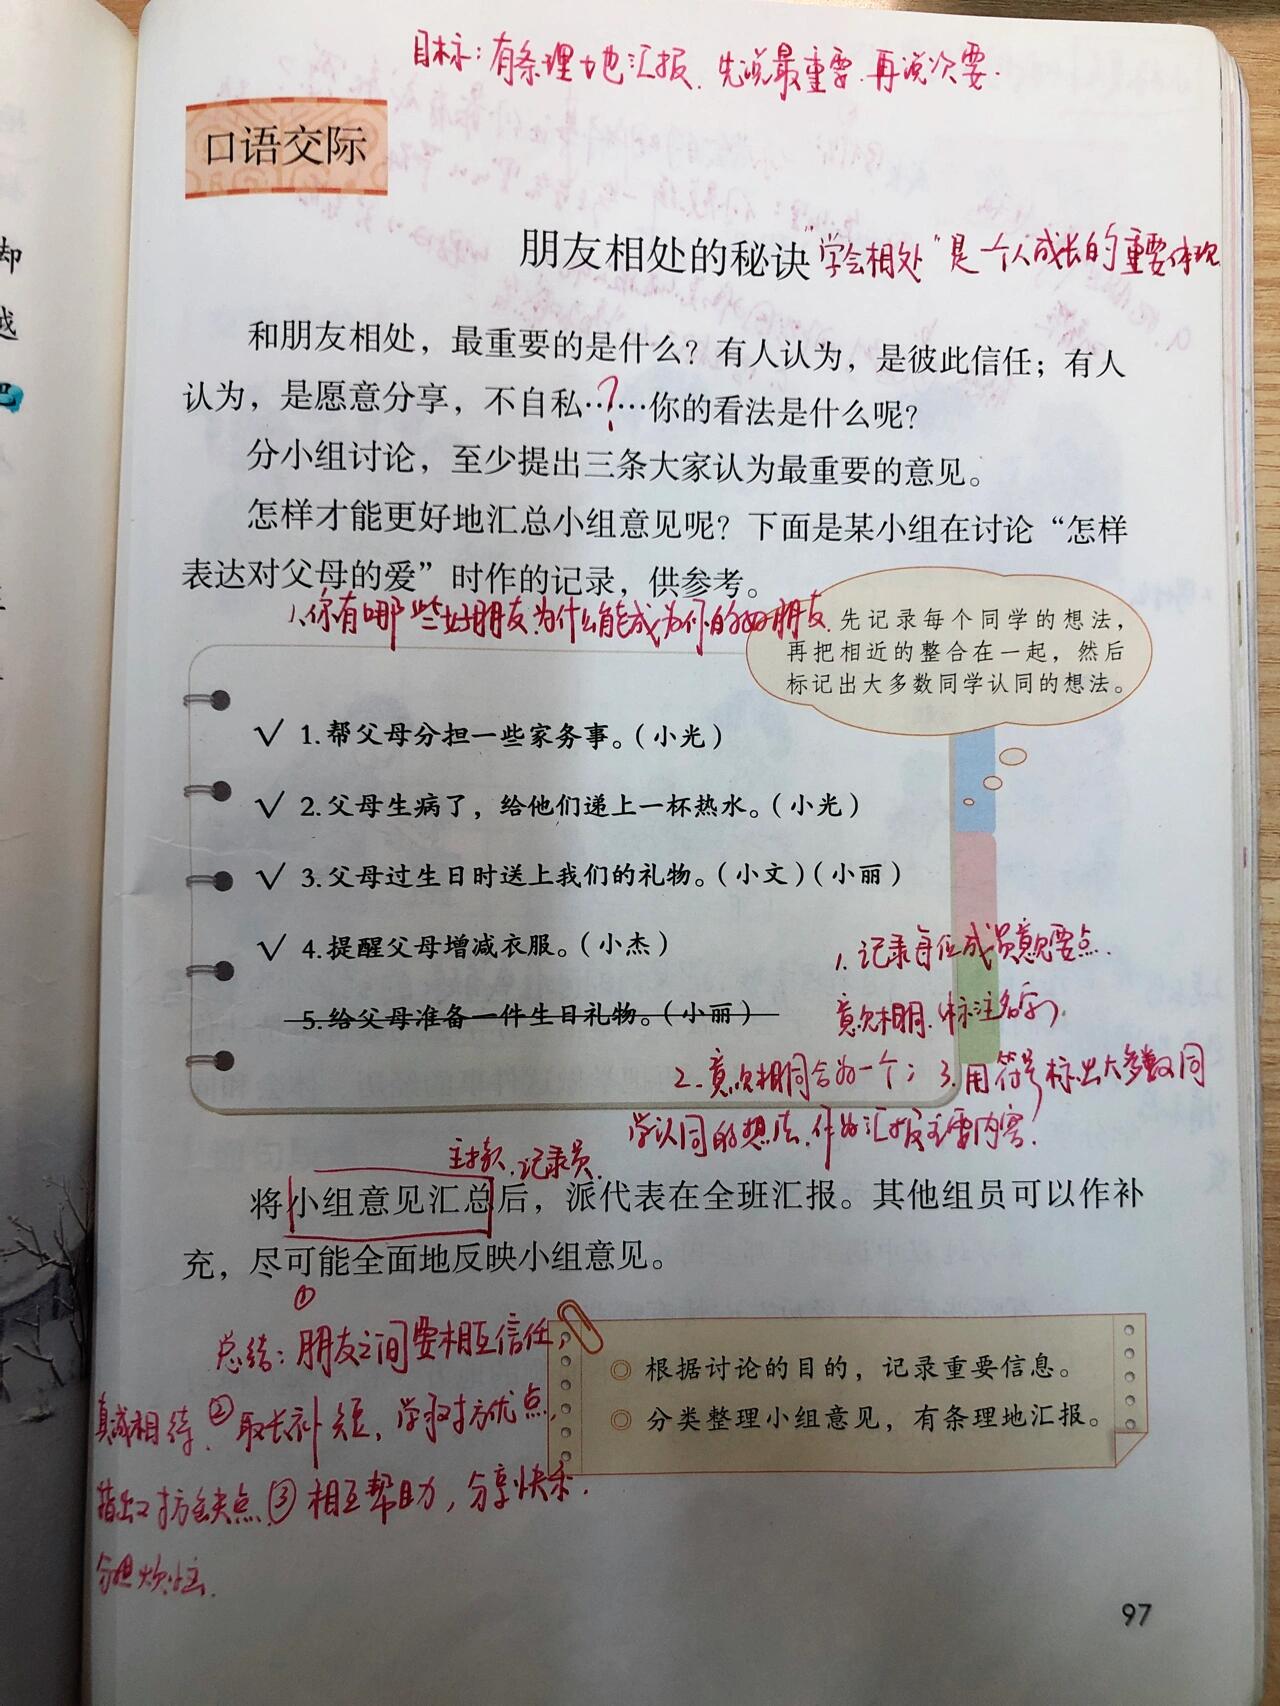 目标：有条理地汇报，先说最重要，再说次要．
口语交际
朋友相处的秘诀
“学会相处”是一个人成长的重要体现
和朋友相处，最重要的是什么？有人认为，是彼此信任；有人
认为，是愿意分享，不自私……你的看法是什么呢？
?
分小组讨论，至少提出三条大家认为最重要的意见。
怎样才能更好地汇总小组意见呢？下面是某小组在讨论“怎样
表达对父母的爱”时作的记录，供参考。
1、你有哪些好朋友，为什么能成为你的好朋友．
先记录每个同学的想法，
再把相近的整合在一起，然后
标记出大多数同学认同的想法。
✓ 1.帮父母分担一些家务事。（小光）
✓ 2.父母生病了，给他们递上一杯热水。（小光）
✓ 3.父母过生日时送上我们的礼物。（小文）（小丽）
✓ 4.提醒父母增减衣服。（小杰）
5.给父母准备一件生日礼物。（小丽）
1、记录每位成员意见要点．
意见相同（标注名字）．
2、意见相同合为一个；3、用符号标出大多数同
学认同的想法，作为汇报主要内容．
主持、记录员
将小组意见汇总后，派代表在全班汇报。其他组员可以作补
充，尽可能全面地反映小组意见。
总结：①朋友之间要相互信任，
真诚相待．②取长补短，学习对方优点，
指出对方缺点．③相互帮助，分享快乐．
分担烦恼．
◎ 根据讨论的目的，记录重要信息。
◎ 分类整理小组意见，有条理地汇报。
97
却
越
吧